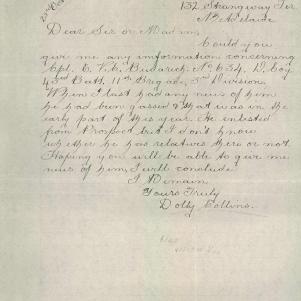 132 Strangway Ter
Nth Adelaide
Dear Sir or Madam,
Could you
give me any information concerning
Cpl. E. V. C. Budarich No 634, D Coy
43rd Batt, 11th Brigade, 3rd Division
When I last had any news of him
he had been gassed & that was in the
early part of this year. He enlisted
from Prospect, but I don't know
whether he has relatives there or not.
Hoping you will be able to give me
news of him, I will conclude
I Remain
Yours Truly
Dolly Collins.